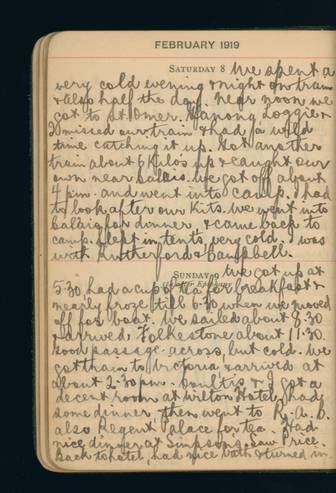 FEBRUARY 1919
SATURDAY 8 We spent a
very cold evening & night on train
& also half the day. Near noon we
got to St. Omer. Ganong, Loggie &
I missed our train & had a wild
time catching it up. Got another
train about 4 Kilos up & caught our
own near Calais. We got off about
4 p.m. and went into camp. I had
to look after our kits. We went into
Calais for dinner, & came back to
camp. Slept in tents, very cold. I was
with Rutherford & Campbell.
SUNDAY 9 We got up at
5.30 had a cup of tea for breakfast &
nearly froze till 6.30 when we moved
off for boat. We sailed about 8.30
& arrived Folkestone about 11.30
Good passage across, but cold. We
got train to Victoria & arrived at
about 2.30 p.m. Coulter & I got a
decent room at Wilton Hotel, had
some dinner then went to R.A.C.
also Regent Palace for tea. Had
nice dinner at Simpsons. Saw Price
Back to hotel, had nice bath & turned in